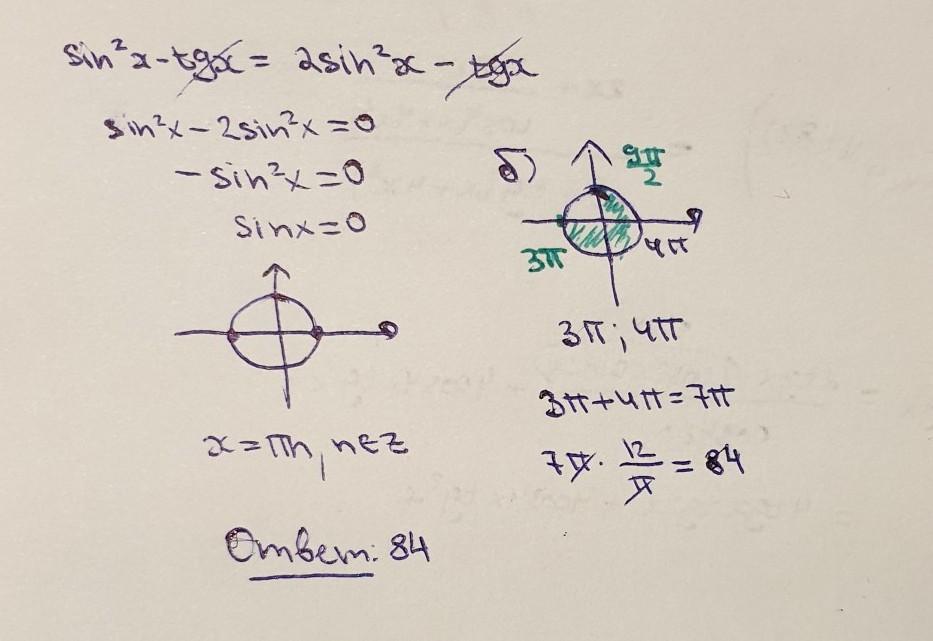 sin²x - tgx = 2sin²x - tgx
sin²x - 2sin²x = 0
-sin²x = 0
sinx = 0
x = πn, n∈Z
б)
9π/2
3π
4π
3π; 4π
3π+4π=7π
7π · 12/π = 84
Ответ: 84